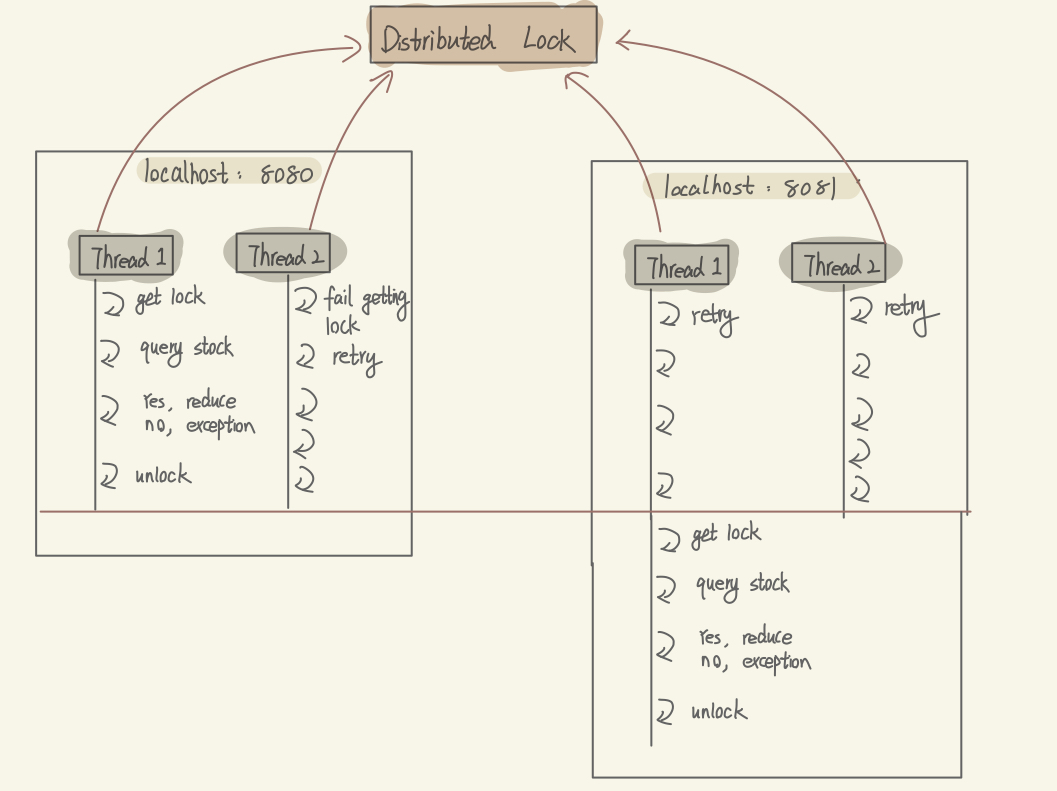 Distributed Lock
localhost: 8080
Thread 1
get lock
query stock
Yes, reduce
no, exception
unlock
Thread 2
fail getting
lock
retry
localhost: 8081
Thread 1
retry
get lock
query stock
Yes, reduce
no, exception
unlock
Thread 2
retry